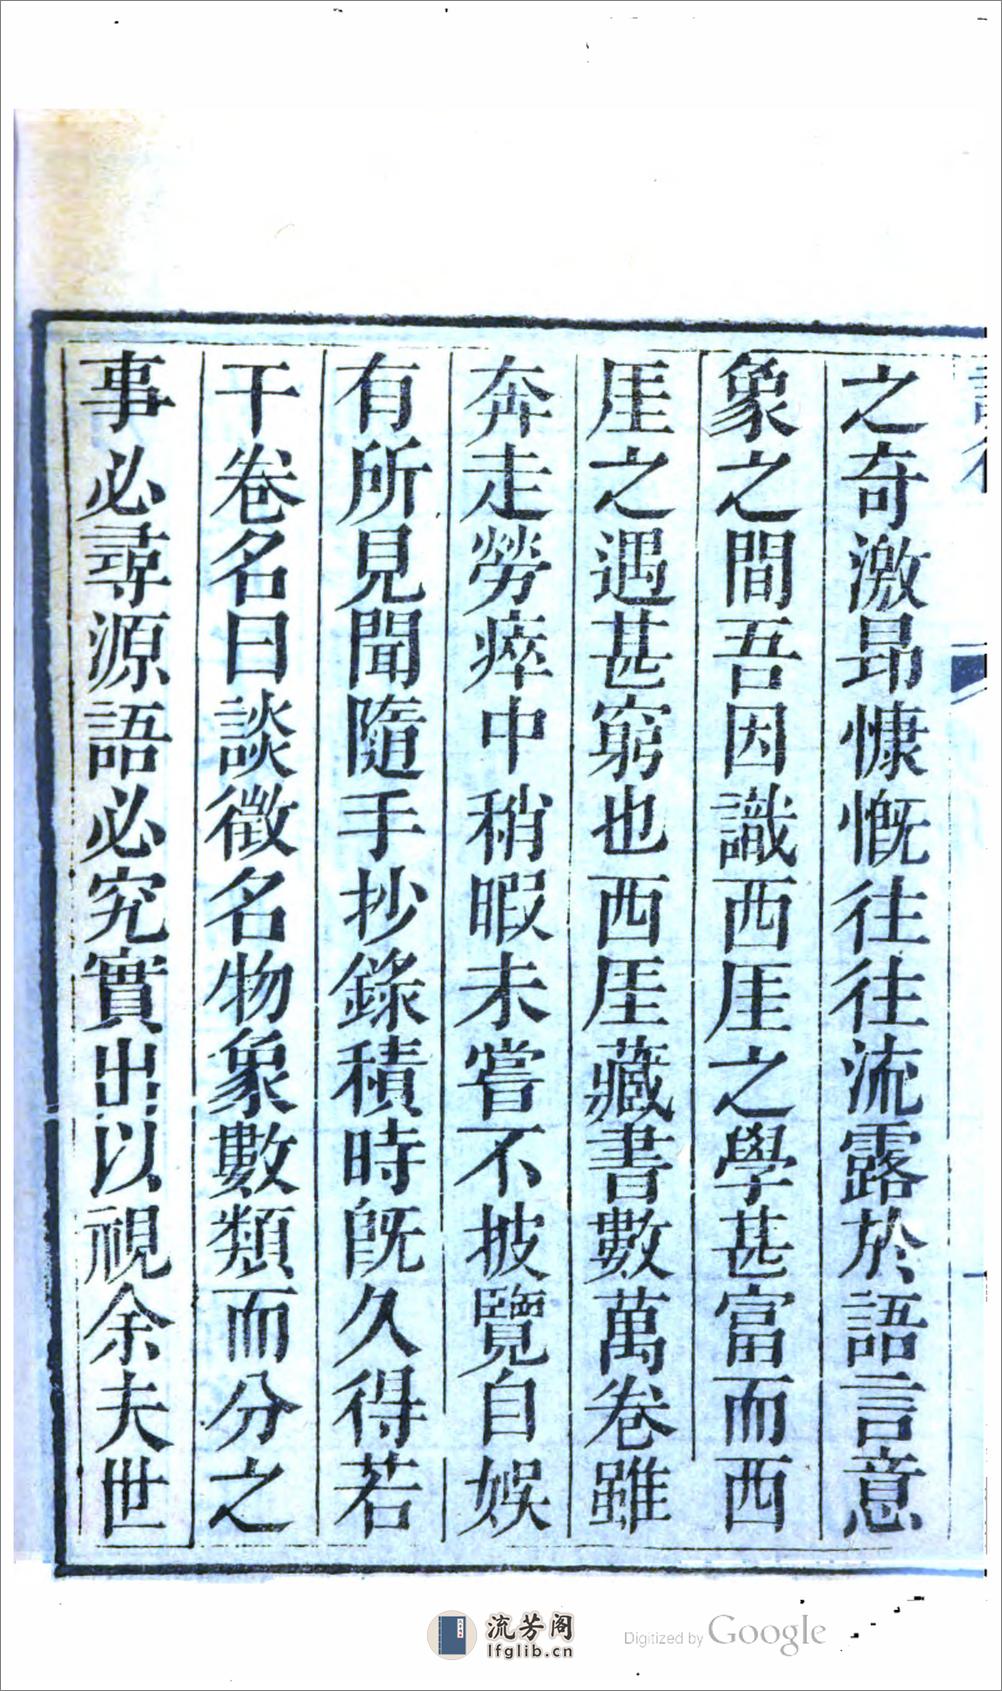 之奇激昻慷慨往往流露於語言意
象之間吾因識西厓之學甚富而西
厓之遇甚窮也西厓藏書數萬卷雖
奔走勞瘁中稍暇未嘗不披覽自娛
有所見聞隨手抄錄積時旣久得若
干卷名曰談徵名物象數類而分之
事必尋源語必究實出以視余夫世
流芳阁
lfglib.cn
Digitized by Google